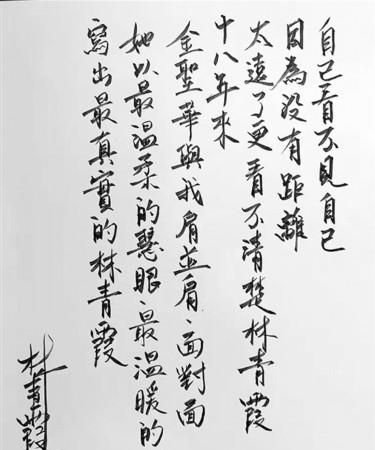 自己看不見自己
因為沒有距離
太遠了更看不清楚林青霞
十八年來
金聖華與我肩並肩、面對面
她以最溫柔的慧眼、最溫暖的
寫出最真實的林青霞
林青霞